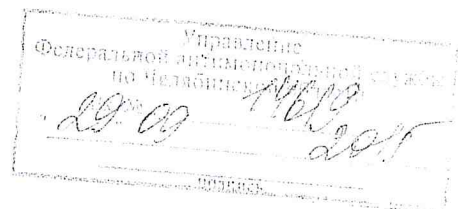 Управление
Федеральной антимонопольной службы
по Челябинской
"29" 09 201
подпись